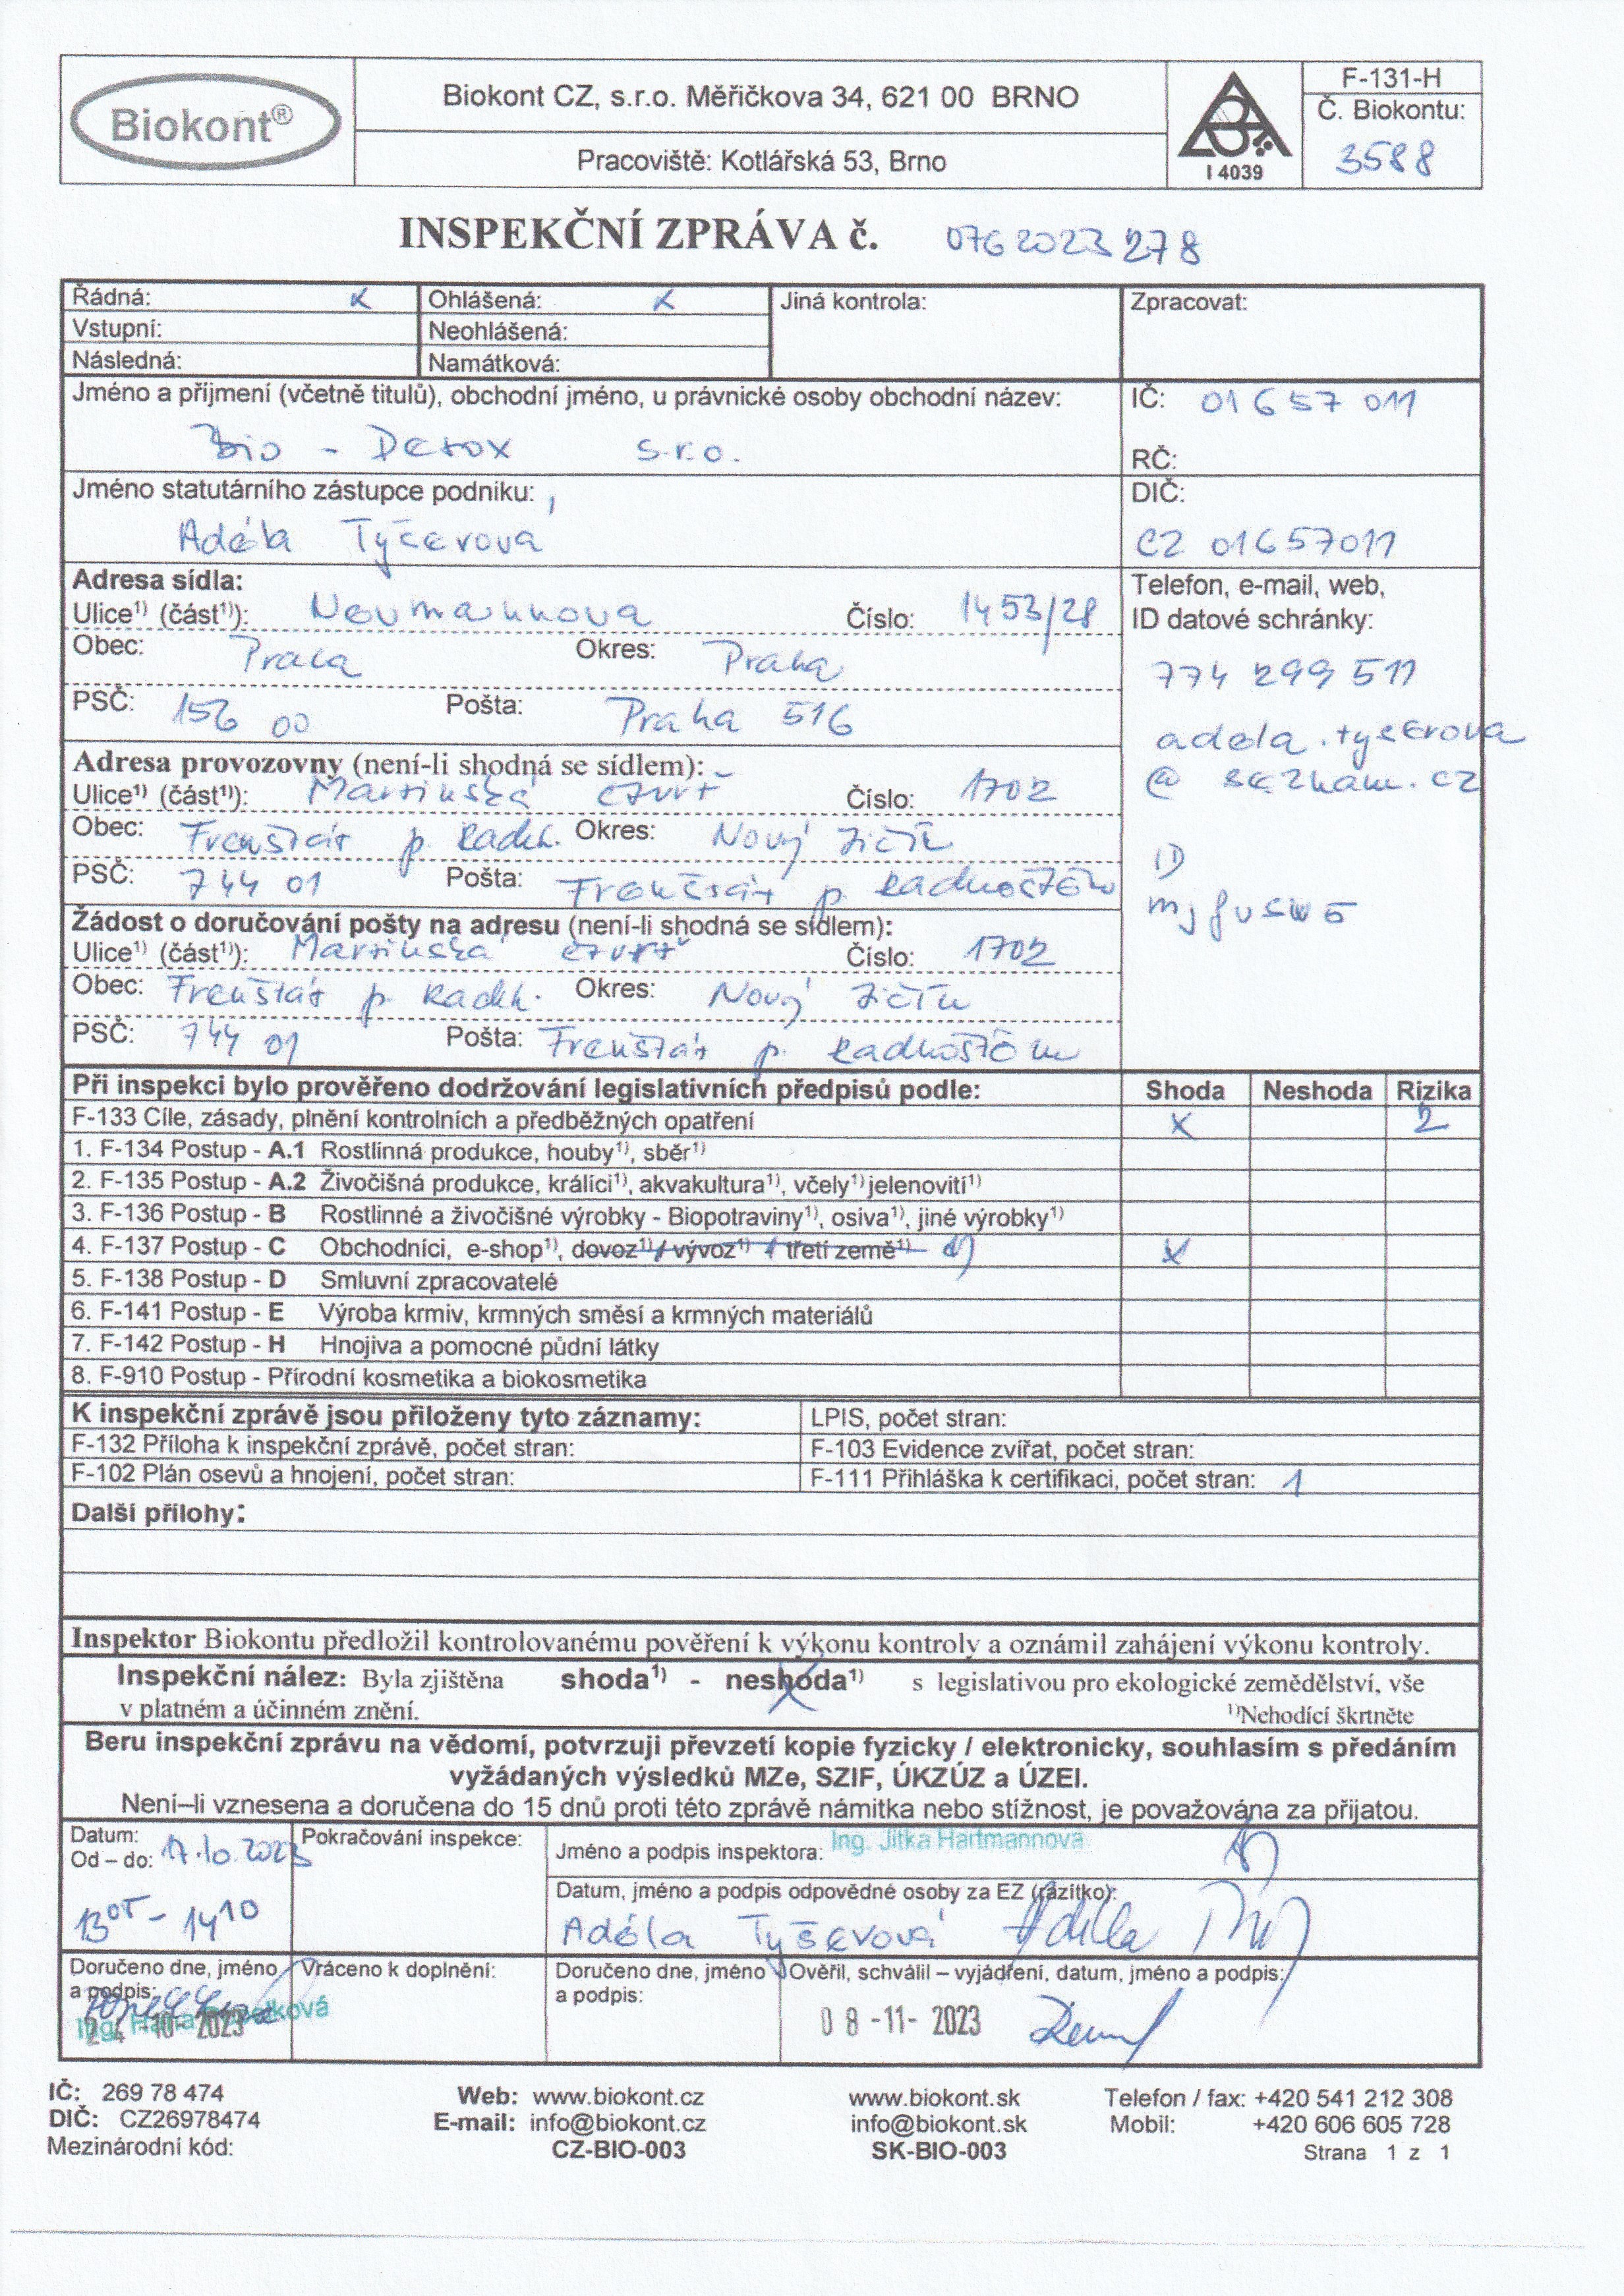 Biokont®
Biokont CZ, s.r.o. Měřičkova 34, 621 00 BRNO
Pracoviště: Kotlářská 53, Brno
I 4039
F-131-H
Č. Biokontu:
3588
INSPEKČNÍ ZPRÁVA č. 0762023278
Řádná: x Ohlášená: x Jiná kontrola: Zpracovat:
Vstupní: Neohlášená:
Následná: Namátková:
Jméno a příjmení (včetně titulů), obchodní jméno, u právnické osoby obchodní název: IČ: 01657011
Bio - Detox s.r.o.
RČ:
Jméno statutárního zástupce podniku: DIČ:
Adéla Tyšerová CZ 01657011
Adresa sídla: Telefon, e-mail, web,
Ulice¹⁾ (část¹⁾): Neumannova Číslo: 1453/28 ID datové schránky:
Obec: Praha Okres: Praha 774 299 511
PSČ: 156 00 Pošta: Praha 516
adela.tyserova
@ seznam.cz
Adresa provozovny (není-li shodná se sídlem):
Ulice¹⁾ (část¹⁾): Martinská čtvrť Číslo: 1702
Obec: Frenštát p. Radh. Okres: Nový Jičín
ID
PSČ: 744 01 Pošta: Frenštát p. Radhoštěm
Žádost o doručování pošty na adresu (není-li shodná se sídlem):
Ulice¹⁾ (část¹⁾): Martinská čtvrť Číslo: 1702
Obec: Frenštát p. Radh. Okres: Nový Jičín
PSČ: 744 01 Pošta: Frenštát p. Radhoštěm
Při inspekci bylo prověřeno dodržování legislativních předpisů podle: Shoda Neshoda Rizika
F-133 Cíle, zásady, plnění kontrolních a předběžných opatření x 2
1. F-134 Postup - A.1 Rostlinná produkce, houby¹⁾, sběr¹⁾
2. F-135 Postup - A.2 Živočišná produkce, králíci¹⁾, akvakultura¹⁾, včely¹⁾ jelenovití¹⁾
3. F-136 Postup - B Rostlinné a živočišné výrobky - Biopotraviny¹⁾, osiva¹⁾, jiné výrobky¹⁾
4. F-137 Postup - C Obchodníci, e-shop¹⁾, dovoz¹⁾ / vývoz¹⁾ / třetí země¹⁾ x
5. F-138 Postup - D Smluvní zpracovatelé
6. F-141 Postup - E Výroba krmiv, krmných směsí a krmných materiálů
7. F-142 Postup - H Hnojiva a pomocné půdní látky
8. F-910 Postup - Přírodní kosmetika a biokosmetika
K inspekční zprávě jsou přiloženy tyto záznamy: LPIS, počet stran:
F-132 Příloha k inspekční zprávě, počet stran: F-103 Evidence zvířat, počet stran:
F-102 Plán osevů a hnojení, počet stran: F-111 Přihláška k certifikaci, počet stran: 1
Další přílohy:
Inspektor Biokontu předložil kontrolovanému pověření k výkonu kontroly a oznámil zahájení výkonu kontroly.
Inspekční nález: Byla zjištěna shoda¹⁾ - neshoda¹⁾ s legislativou pro ekologické zemědělství, vše
v platném a účinném znění. ¹⁾Nehodící škrtněte
Beru inspekční zprávu na vědomí, potvrzuji převzetí kopie fyzicky / elektronicky, souhlasím s předáním
vyžádaných výsledků MZe, SZIF, ÚKZÚZ a ÚZEI.
Není–li vznesena a doručena do 15 dnů proti této zprávě námitka nebo stížnost, je považována za přijatou.
Datum: Pokračování inspekce: Jméno a podpis inspektora: Ing. Jitka Hartmannová
Od – do: 17.10.2023
Datum, jméno a podpis odpovědné osoby za EZ (razítko):
13⁰⁵ - 14¹⁰ Adéla Tyšerová
Doručeno dne, jméno Vráceno k doplnění: Doručeno dne, jméno Ověřil, schválil – vyjádření, datum, jméno a podpis:
a podpis: a podpis:
Ing. Hana
24 -10- 2023 08 -11- 2023
IČ: 269 78 474 Web: www.biokont.cz www.biokont.sk Telefon / fax: +420 541 212 308
DIČ: CZ26978474 E-mail: info@biokont.cz info@biokont.sk Mobil: +420 606 605 728
Mezinárodní kód: CZ-BIO-003 SK-BIO-003 Strana 1 z 1